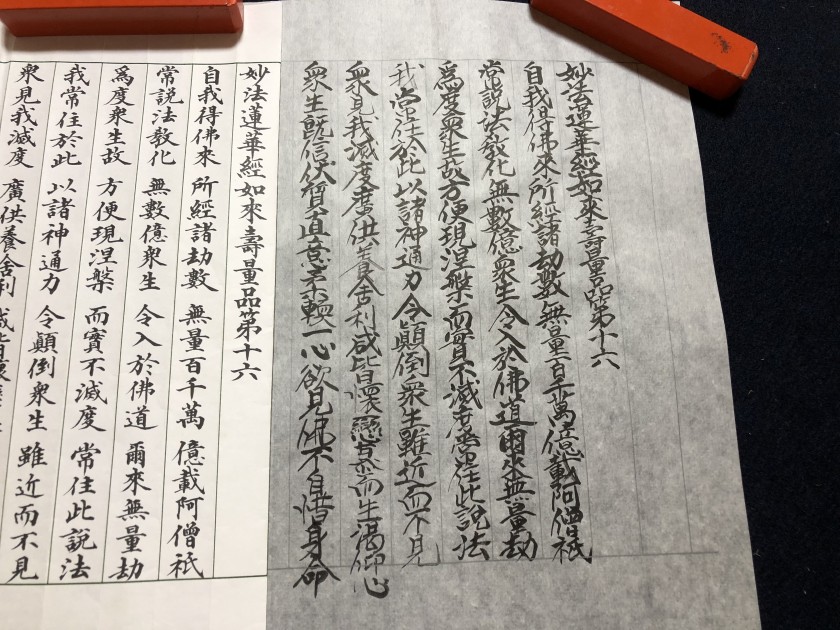 妙法蓮華經如來壽量品第十六
自我得佛來所經諸劫數無量百千萬億載阿僧祇
常説法教化無數億衆生令入於佛道爾來無量劫
為度衆生故方便現涅槃而實不滅度常住此説法
我常住於此以諸神通力令顛倒衆生雖近而不見
衆見我滅度廣供養舍利咸皆懷戀慕而生渇仰心
衆生既信伏質直意柔輭一心欲見佛不自惜身命
妙法蓮華經如來壽量品第十六
自我得佛來 所經諸劫數 無量百千萬 億載阿僧祇
常説法教化 無數億衆生 令入於佛道 爾來無量劫
爲度衆生故 方便現涅槃 而實不滅度 常住此説法
我常住於此 以諸神通力 令顛倒衆生 雖近而不見
衆見我滅度 廣供養舍利 咸皆懷